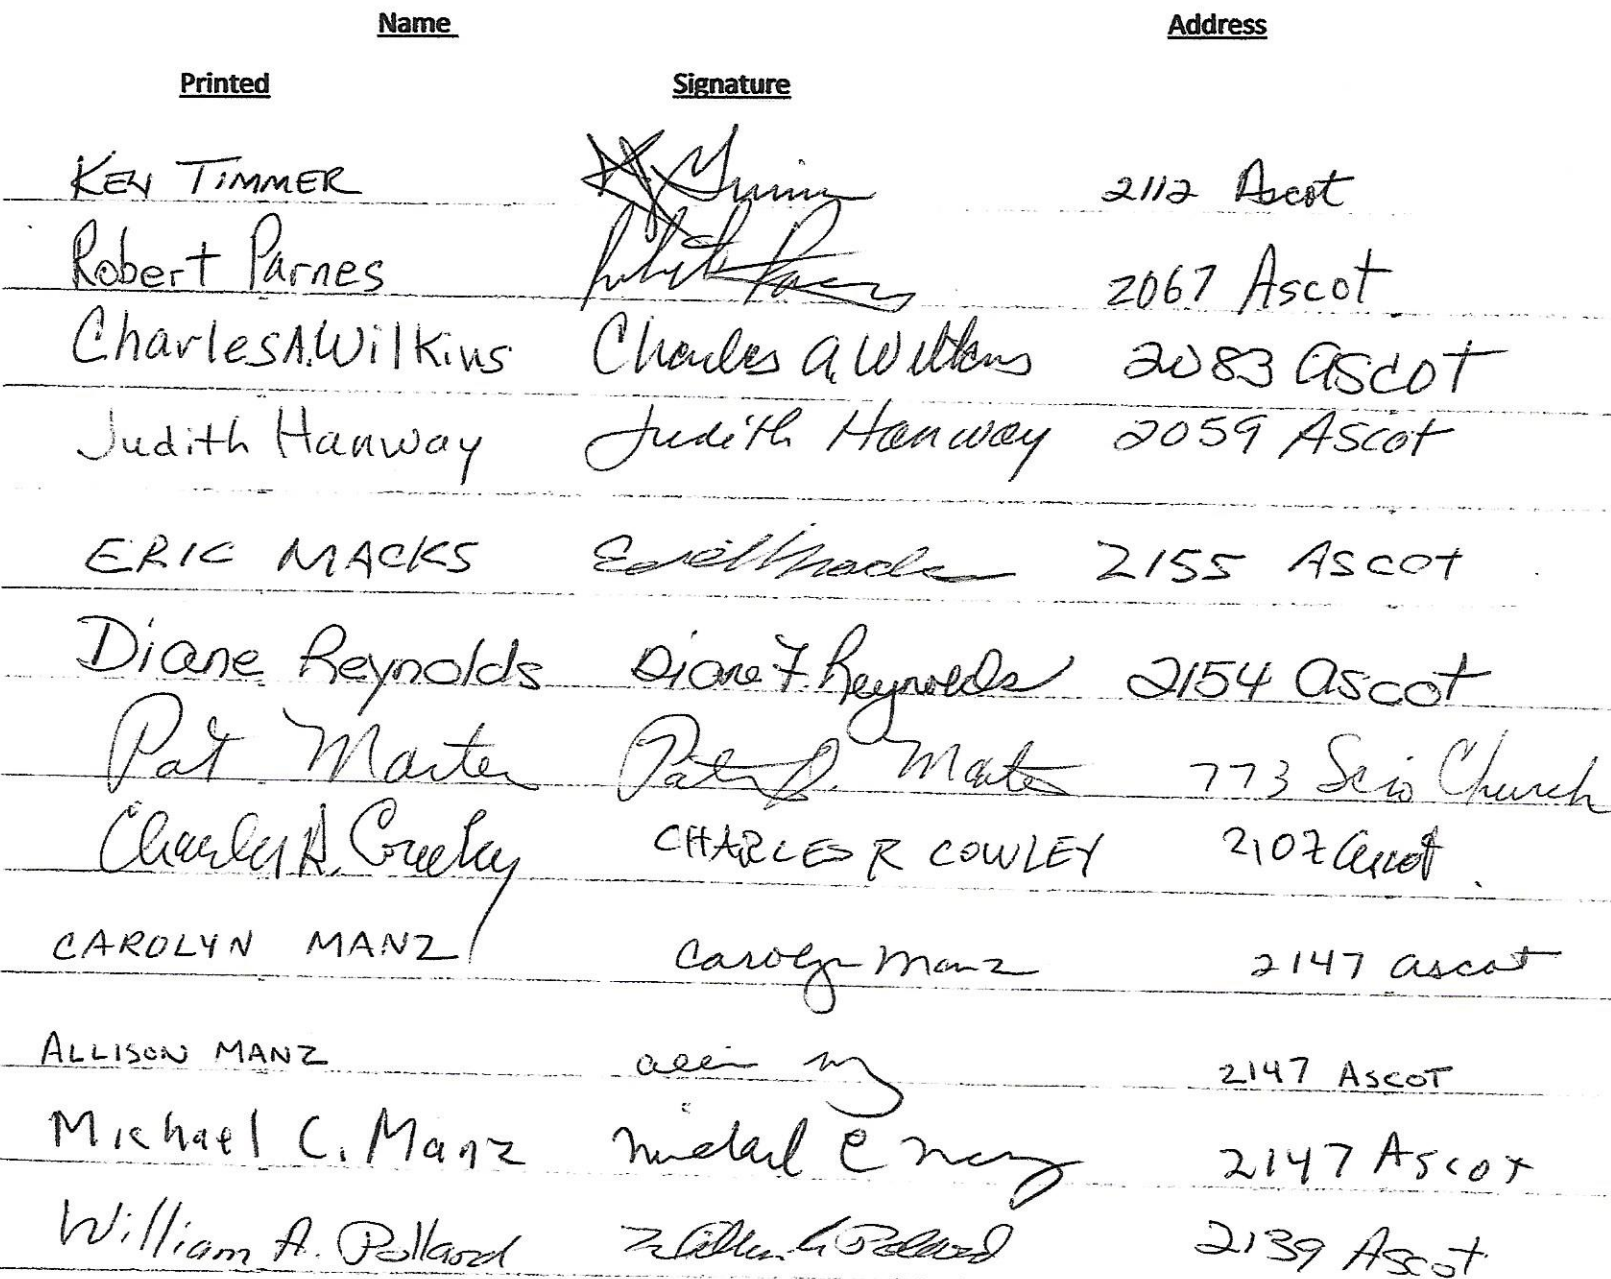 Name Address
Printed Signature
KEN TIMMER K. Timmer 2112 Ascot
Robert Parnes Robert Parnes 2067 Ascot
Charles A. Wilkins Charles A. Wilkins 2083 Ascot
Judith Hanway Judith Hanway 2059 Ascot
ERIC MACKS Eric Macks 2155 Ascot
Diane Reynolds Diane F. Reynolds 2154 Ascot
Pat Martin 773 Scio Church
Charles R. Cowley CHARLES R COWLEY 2107 Ascot
CAROLYN MANZ Carolyn Manz 2147 Ascot
ALLISON MANZ 2147 ASCOT
Michael C. Manz Michael C Manz 2147 Ascot
William A. Pollard William A Pollard 2139 Ascot